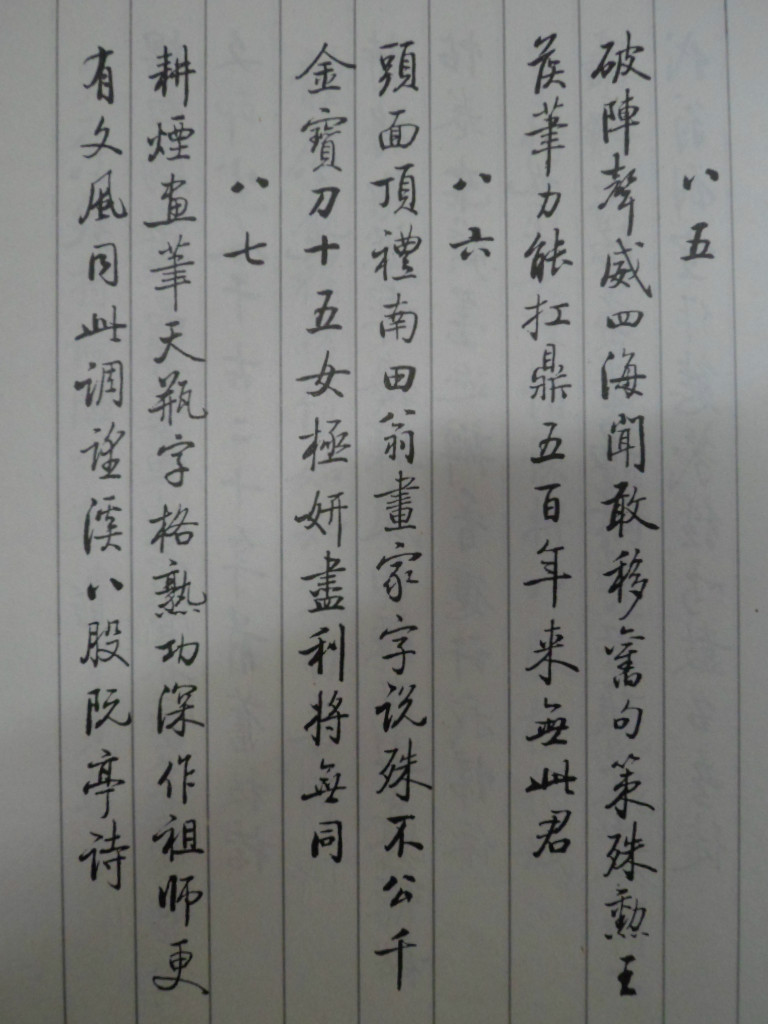 八五
破陣聲威四海聞敢移舊句策殊勳王
侯筆力能扛鼎五百年来無此君
八六
頭面頂禮南田翁畫家字説殊不公千
金寶刀十五女極妍盡利將無同
八七
耕煙畫筆天瓶字格熟功深作祖師更
有文風同此調望溪八股阮亭诗